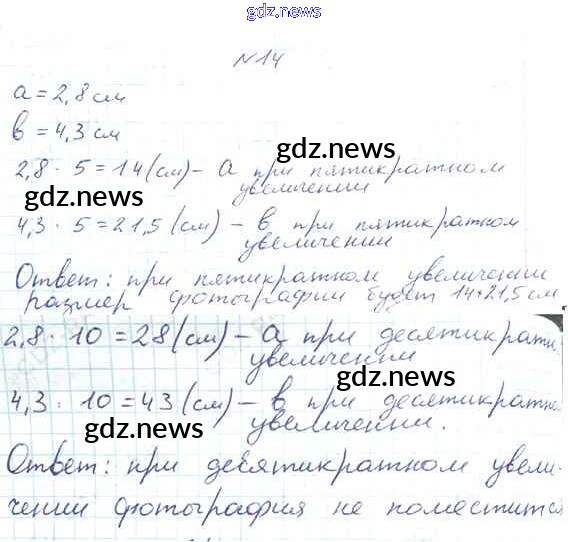 gdz.news
№14
a = 2,8 см
в = 4,3 см
gdz.news
2,8 · 5 = 14 (см) – a при пятикратном
увеличении
gdz.news
4,3 · 5 = 21,5 (см) – в при пятикратном
увеличении
Ответ: при пятикратном увеличении
размер фотографии будет 14×21,5 см.
2,8 · 10 = 28 (см) – a при десятикратн
увеличении
gdz.news
4,3 · 10 = 43 (см) – в при десятикратно
gdz.news
увеличении.
Ответ: при десятикратном увели-
чении фотография не поместится